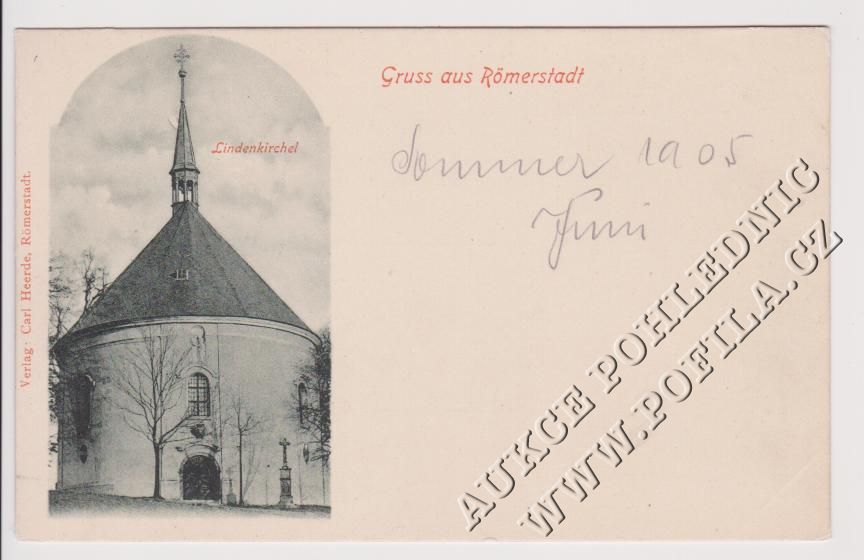 Gruss aus Römerstadt
Lindenkirchel
Sommer 1905
Juni
Verlag: Carl Heerde, Römerstadt.
AUKCE POHLEDNIC
WWW.POFILA.CZ